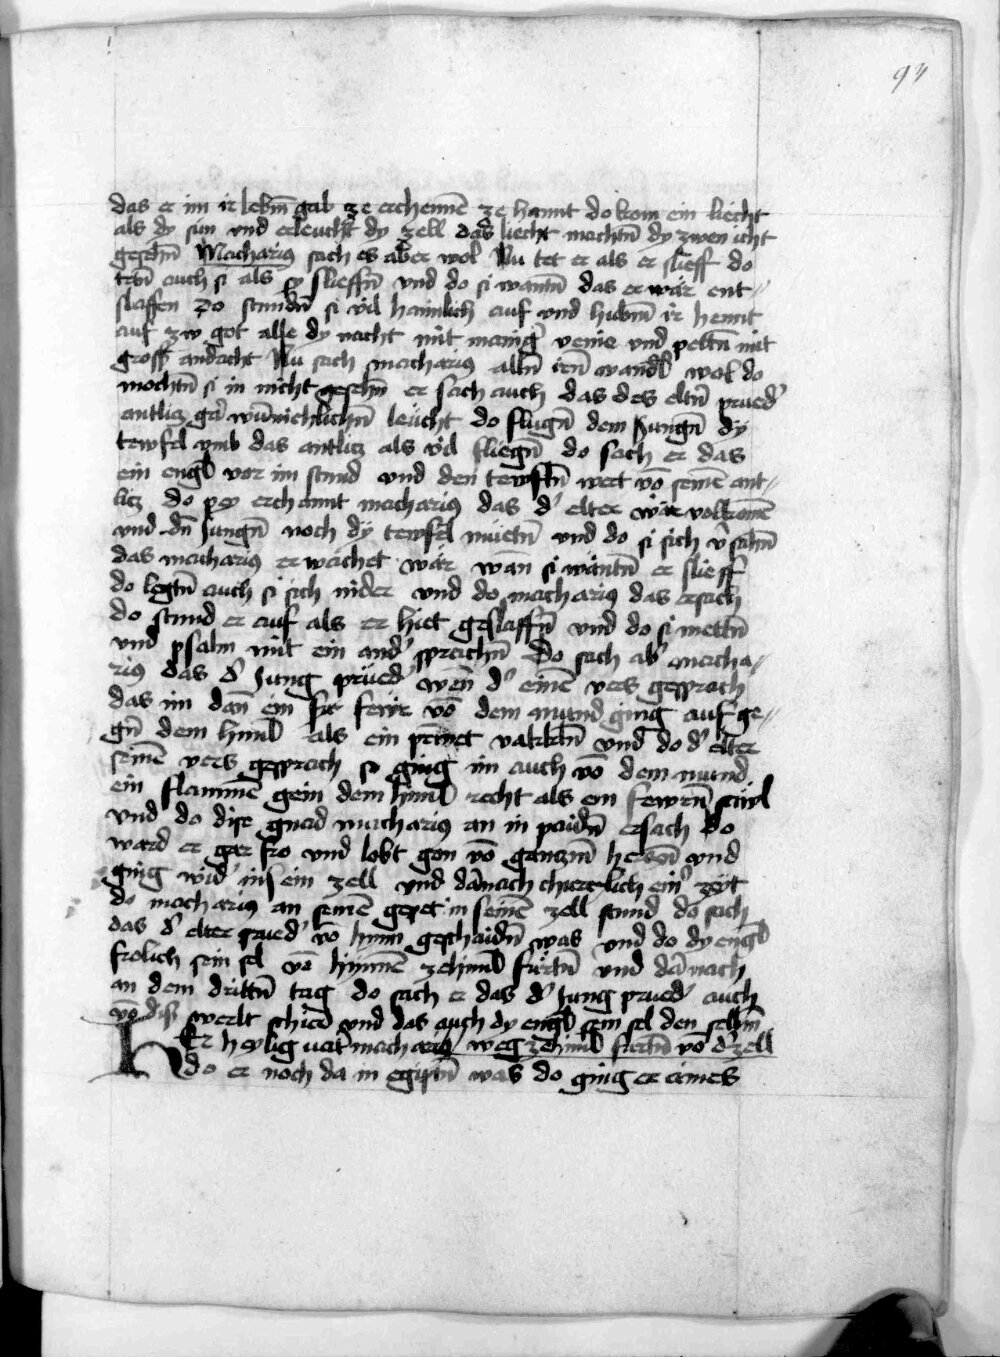 94
das er im ir lebñ gab ze erchennē ze hannt do kom ein liecht
als dy sun vnd erleucht dy zell das liecht machtñ dy zwen icht
gesehñ Macharius sach es aber wol Nu tet er als er slieff do
tetñ auch si als sy slieffñ vnd do si wantñ das er wär ent-
slaffen do stundñ si vil haimlich auf vnd hubñ ir hennt
auf zw got alle dy nacht mit manig venie vnd petñ mit
gross andacht Nu sach macharius allñ irñ wandl wol do
mochtñ si in nicht gesehñ er sach auch das des eltñ prued
antlicz gar wūnichlichñ leücht do flugñ dem Jungñ dy
tewfel vmb das antlicz als vil fliegñ do sach er das
ein engl vor im stund vnd den tewfln wert vō seinē ant-
licz do pey erchannt macharius das d' elter wär volkomē
vnd dñ Jungñ noch dy tewfel müetñ vnd do si sich v'sahñ
das macharius erwachet wär wan si wantñ er slieff
do legtñ auch si sich nider vnd do macharius das ersach
do stund er auf als er hiet geslaffñ vnd do si mettñ
vnd psalm mit ein and' sprachñ Do sach ab' macha-
rius das d' Jung prüed' wen d' einē vers gesprach
das im dan ein fewr vō dem mund ging auf ge-
gñ dem himl als ein prinet vakkln vnd do d' elter
seinē vers gesprach so ging im auch vō dem mund
ein flammē gein dem himl recht als ein fewrñ säyl
vnd do dise gnad macharius an in paidñ ersach do
ward er gar fro vnd lobt gon vō ganczm herczñ vnd
ging wid' in sein zell vnd darnach churczlich ein' zeyt
do macharius an seinē gepet in seinē zell stund do sach
das d' elter prued' vō hinn geschaidñ was vnd do dy engl
frolich sein sel vō hinnē ze himl fürtñ vnd dārnach
an dem drittñ tag do sach er das d' Jung prued' auch
vō diss werlt schied vnd das auch dy engl sein sel den selbñ
weg ze himl furtñ vō d' zell
Er heylig vat' macharius
do er noch da in egiptñ was do ging er aines